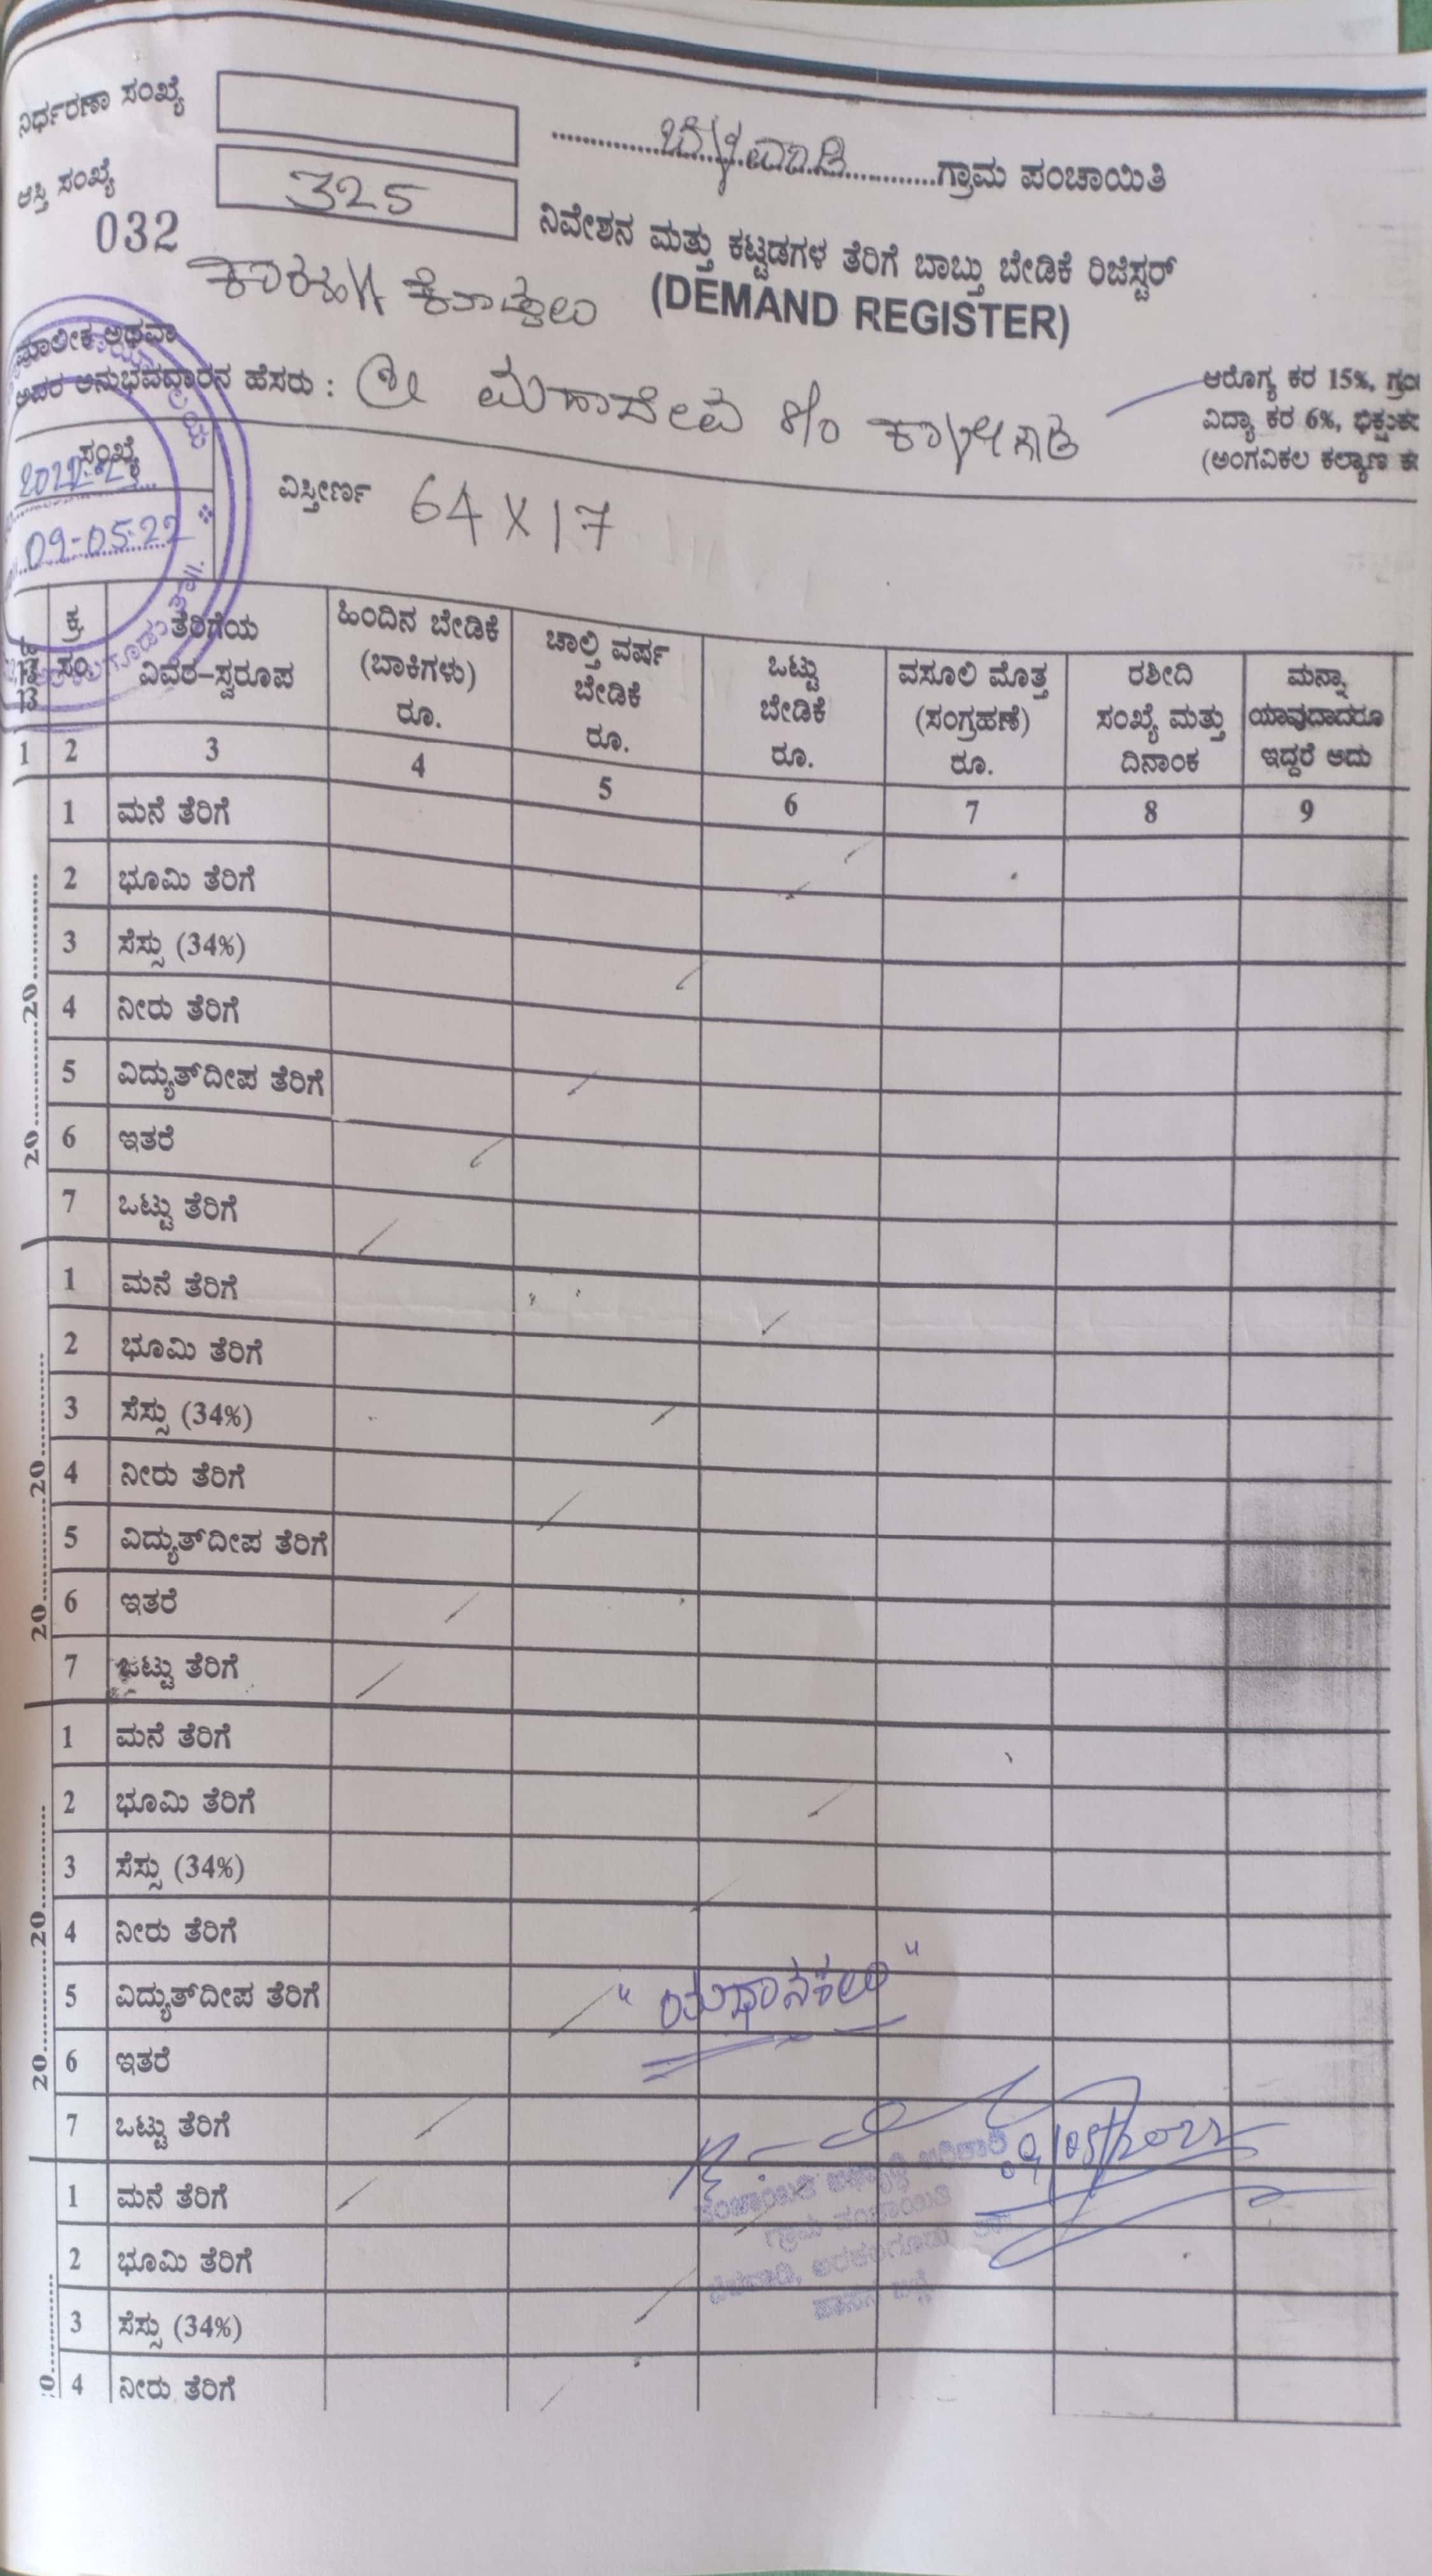 ನಿರ್ಧರಣಾ ಸಂಖ್ಯೆ
ಬೆಳವಾಡಿ ಗ್ರಾಮ ಪಂಚಾಯಿತಿ
ಆಸ್ತಿ ಸಂಖ್ಯೆ 325
032
ನಿವೇಶನ ಮತ್ತು ಕಟ್ಟಡಗಳ ತೆರಿಗೆ ಬಾಬ್ತು ಬೇಡಿಕೆ ರಿಜಿಸ್ಟರ್
(DEMAND REGISTER)
ಮಾಲೀಕ ಅಥವಾ
ಅವರ ಅನುಭವದ್ದಾರನ ಹೆಸರು : ಶ್ರೀ ಮಹಾದೇವ S/o
ಆರೋಗ್ಯ ಕರ 15%,
ವಿದ್ಯಾ ಕರ 6%,
(ಅಂಗವಿಕಲ ಕಲ್ಯಾಣ
ಸಂಖ್ಯೆ
09-05-22
ವಿಸ್ತೀರ್ಣ 64 X 17
ಕ್ರ ಸಂ
ತೆರಿಗೆಯ ವಿವರ-ಸ್ವರೂಪ
ಹಿಂದಿನ ಬೇಡಿಕೆ (ಬಾಕಿಗಳು) ರೂ.
ಚಾಲ್ತಿ ವರ್ಷ ಬೇಡಿಕೆ ರೂ.
ಒಟ್ಟು ಬೇಡಿಕೆ ರೂ.
ವಸೂಲಿ ಮೊತ್ತ (ಸಂಗ್ರಹಣೆ) ರೂ.
ರಶೀದಿ ಸಂಖ್ಯೆ ಮತ್ತು ದಿನಾಂಕ
ಮನ್ನಾ ಯಾವುದಾದರೂ ಇದ್ದರೆ ಅದು
1 2 3 4 5 6 7 8 9
20..........20..........
1 ಮನೆ ತೆರಿಗೆ
2 ಭೂಮಿ ತೆರಿಗೆ
3 ಸೆಸ್ಸು (34%)
4 ನೀರು ತೆರಿಗೆ
5 ವಿದ್ಯುತ್‌ದೀಪ ತೆರಿಗೆ
6 ಇತರೆ
7 ಒಟ್ಟು ತೆರಿಗೆ
20..........20..........
1 ಮನೆ ತೆರಿಗೆ
2 ಭೂಮಿ ತೆರಿಗೆ
3 ಸೆಸ್ಸು (34%)
4 ನೀರು ತೆರಿಗೆ
5 ವಿದ್ಯುತ್‌ದೀಪ ತೆರಿಗೆ
6 ಇತರೆ
7 ಒಟ್ಟು ತೆರಿಗೆ
20..........20..........
1 ಮನೆ ತೆರಿಗೆ
2 ಭೂಮಿ ತೆರಿಗೆ
3 ಸೆಸ್ಸು (34%)
4 ನೀರು ತೆರಿಗೆ
5 ವಿದ್ಯುತ್‌ದೀಪ ತೆರಿಗೆ
" ಯಥಾನಕಲು "
6 ಇತರೆ
7 ಒಟ್ಟು ತೆರಿಗೆ
09/05/2022
ಪಂಚಾಯಿತಿ ಅಭಿವೃದ್ಧಿ ಅಧಿಕಾರಿ
ಗ್ರಾಮ ಪಂಚಾಯಿತಿ
ಬೆಳವಾಡಿ, ಅರಕಲಗೂಡು ತಾ||
ಹಾಸನ ಜಿಲ್ಲೆ
1 ಮನೆ ತೆರಿಗೆ
2 ಭೂಮಿ ತೆರಿಗೆ
3 ಸೆಸ್ಸು (34%)
4 ನೀರು ತೆರಿಗೆ